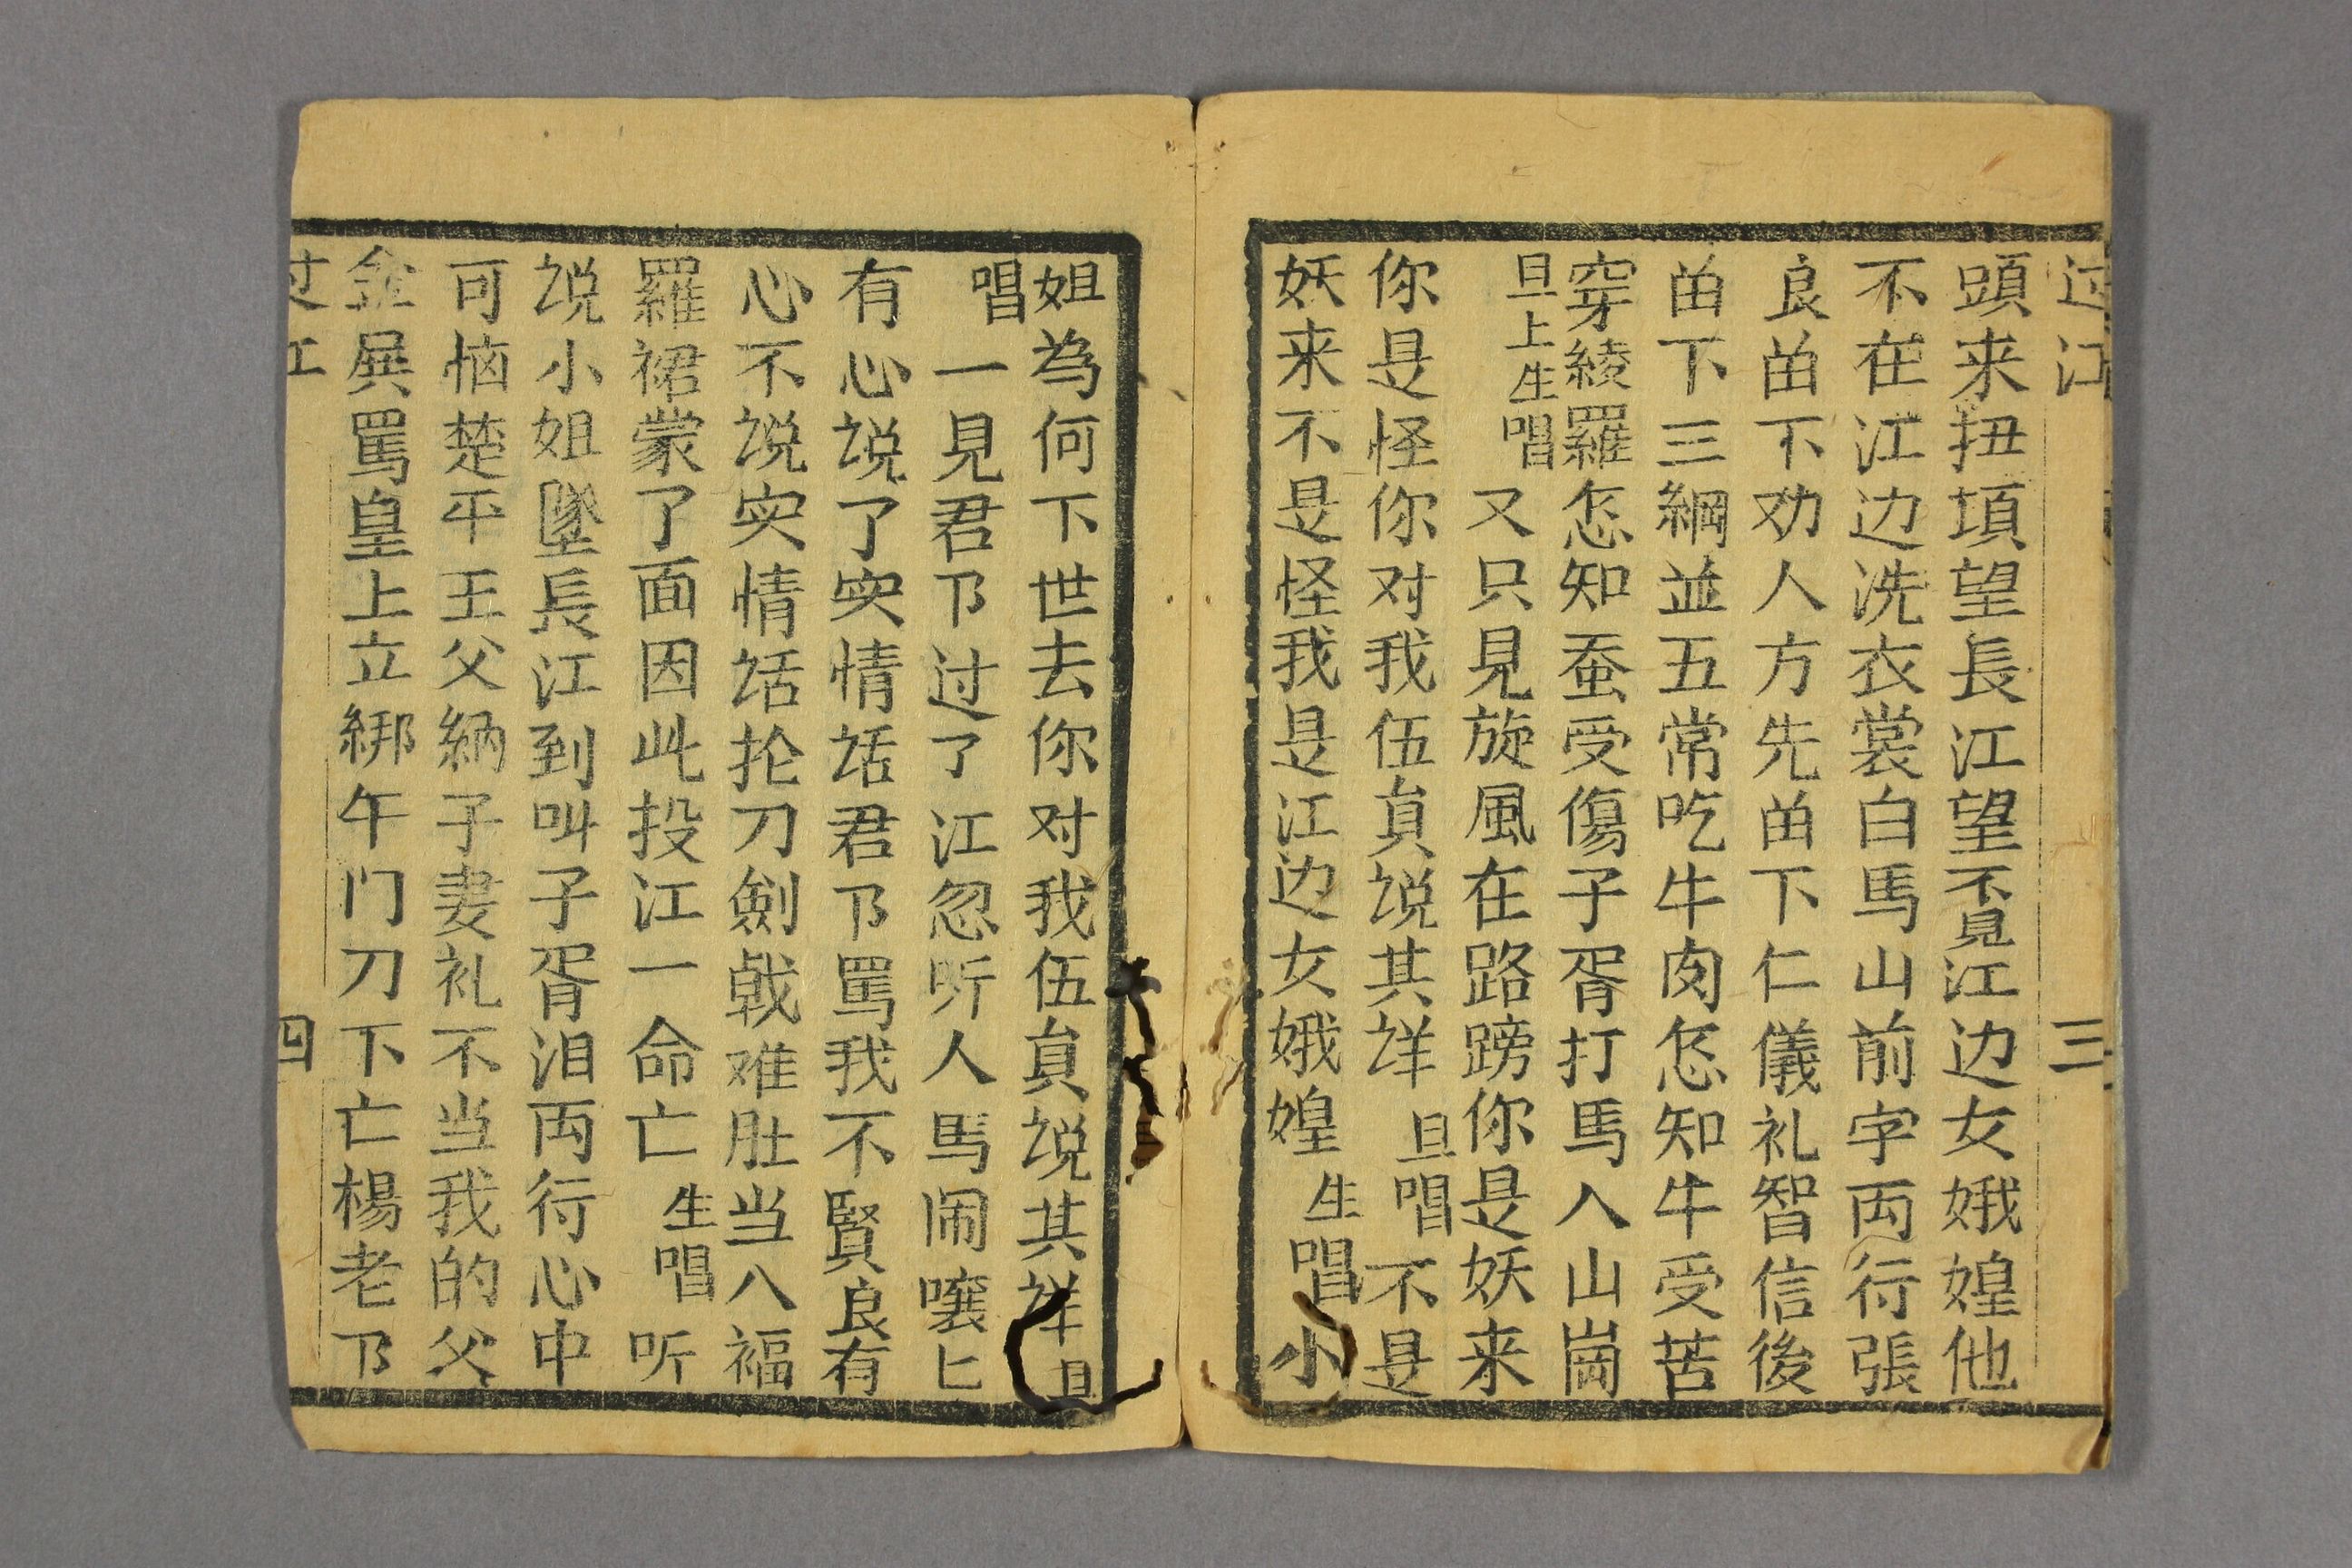 过江 三
頭来扭項望長江望不見江边女娥媓他
不在江边洗衣裳白馬山前字両行張
良畄下劝人方先畄下仁儀礼智信後
畄下三綱並五常吃牛肉怎知牛受苦
穿綾羅怎知蚕受傷子胥打馬入山崗
旦上生唱 又只見旋風在路蹐你是妖来
你是怪你对我伍貟説其详 旦唱 不是
妖来不是怪我是江边女娥媓 生唱 小
姐為何下世去你对我伍貟説其详 旦
唱 一見君乃过了江忽听人馬闹嚷匕
有心説了实情話君乃罵我不賢良有
心不説实情話抡刀劍戟难肚当八福
羅裙蒙了面因此投江一命亡 生唱 听
説小姐墜長江到叫子胥泪両行心中
可恼楚平王父納子妻礼不当我的父
金殿罵皇上立綁午门刀下亡楊老乃
过江 四